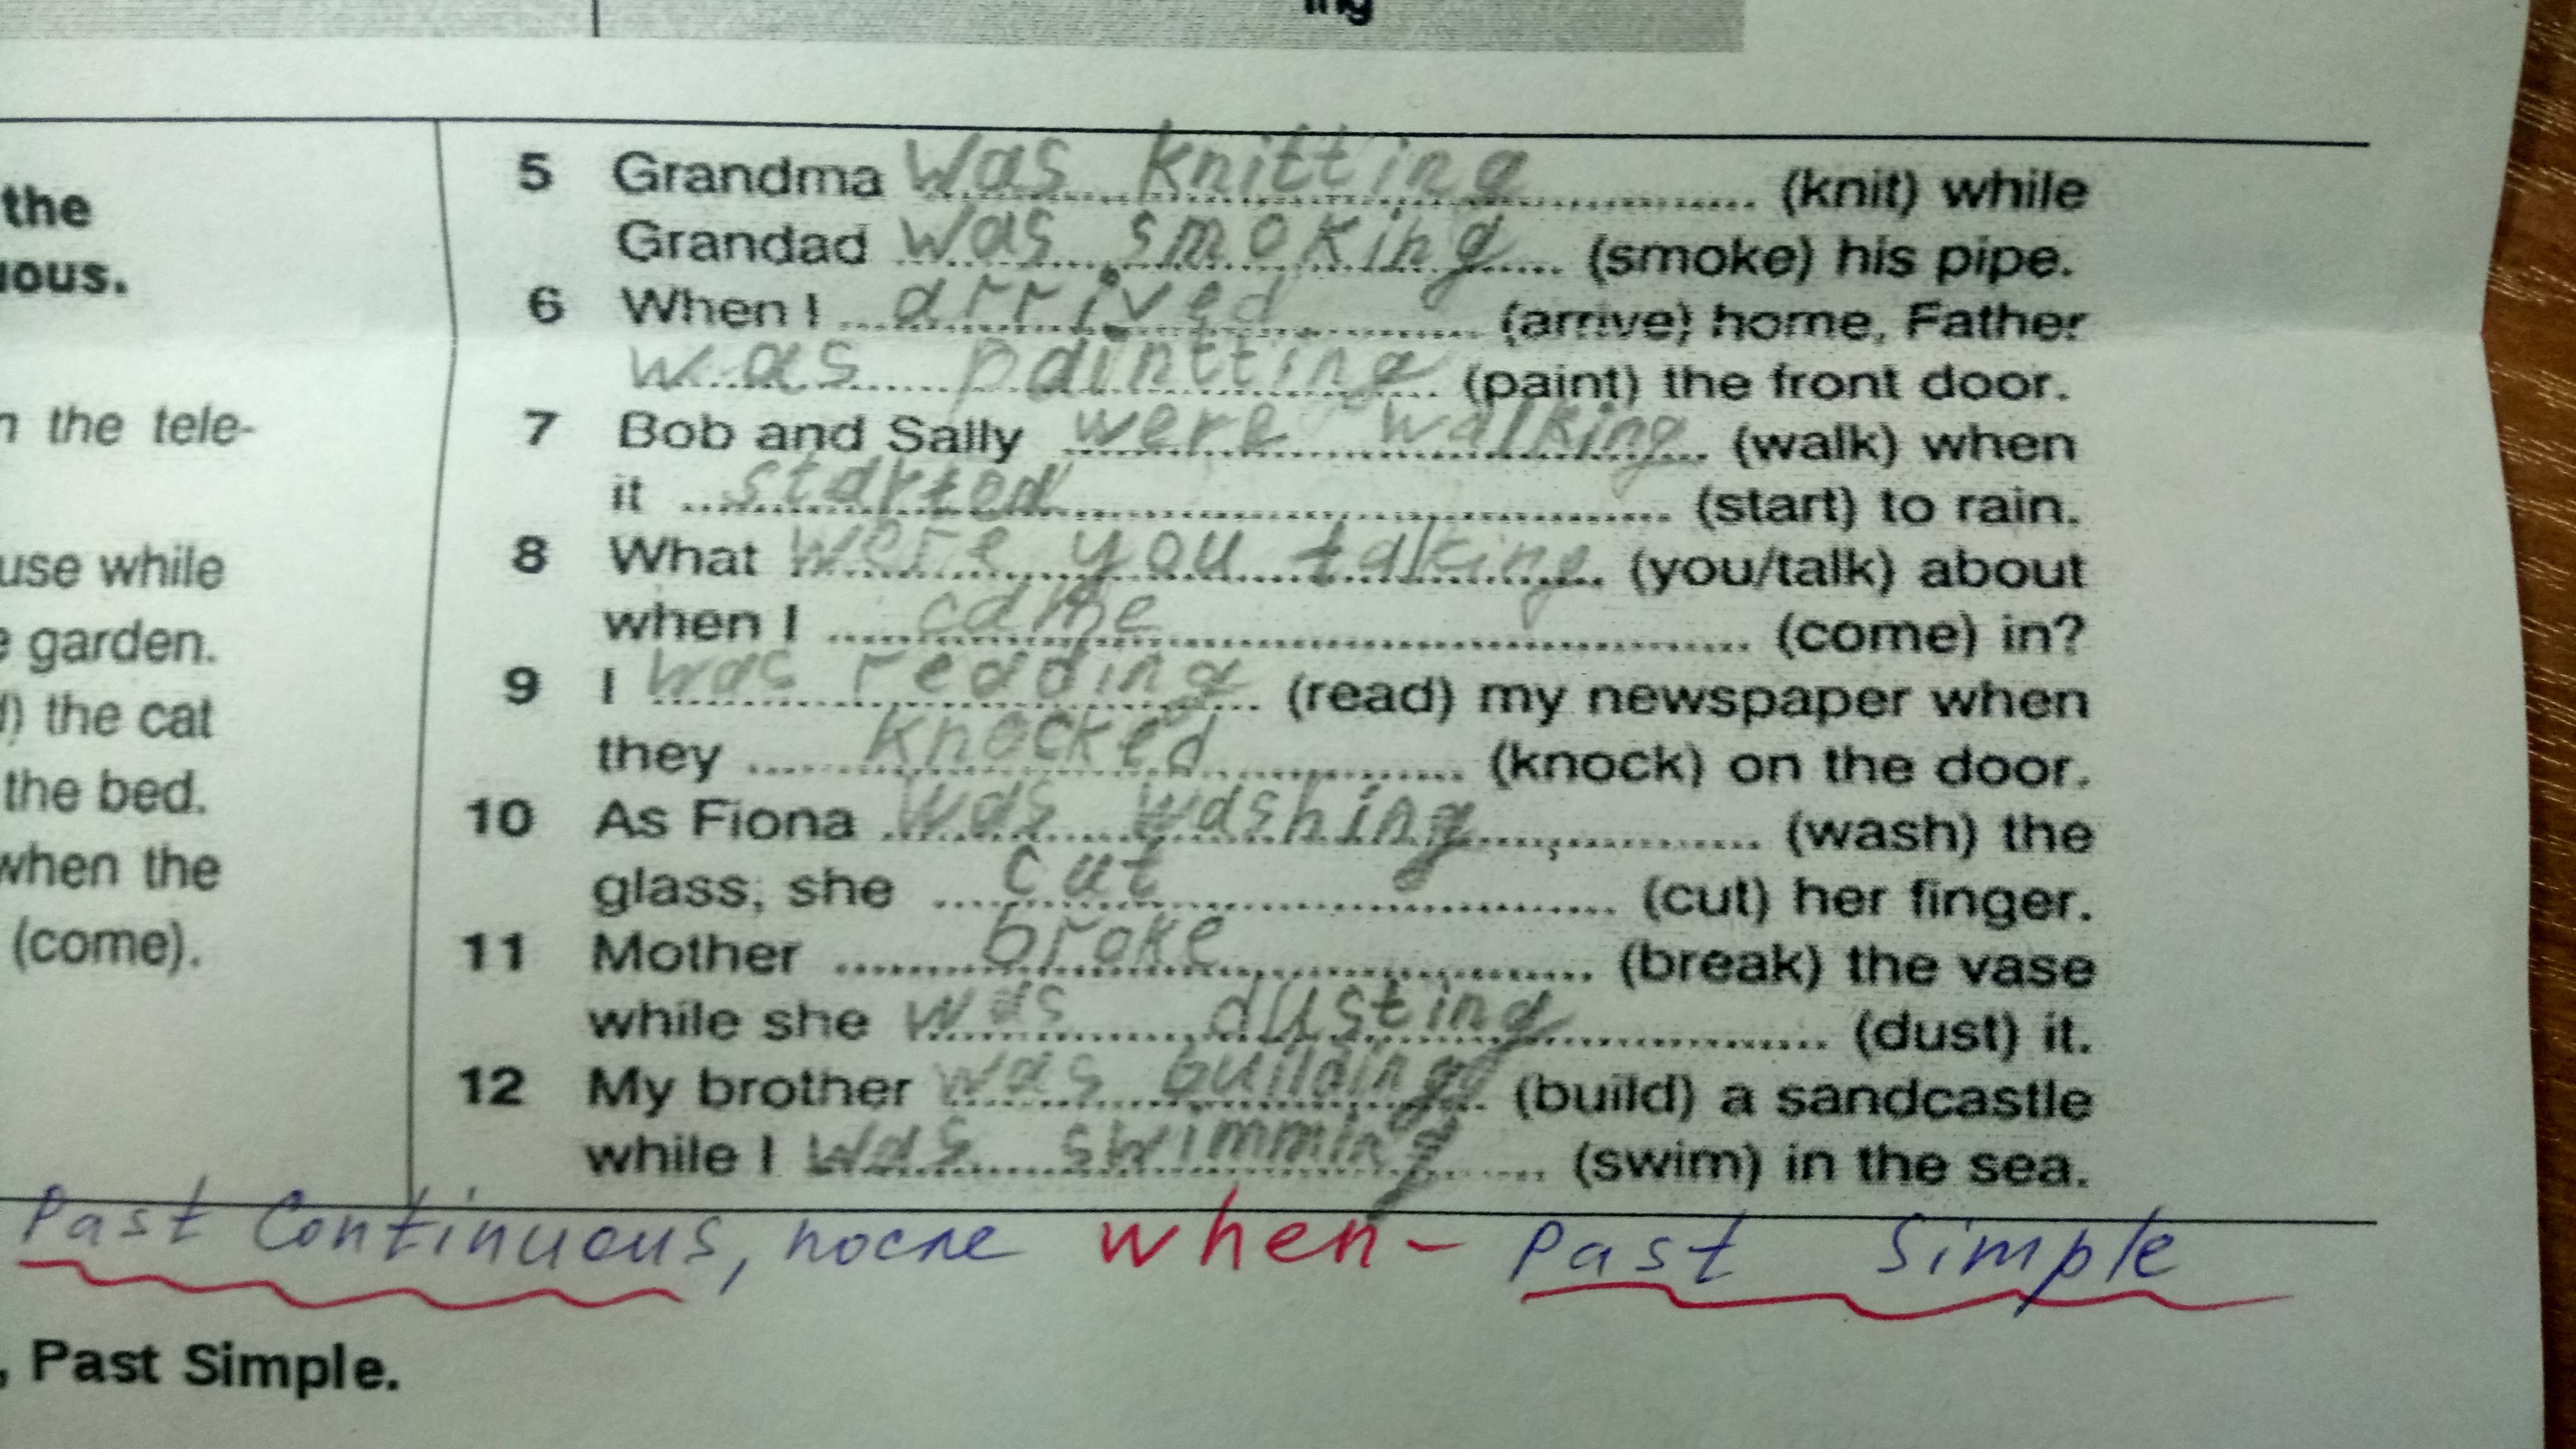 ing
the
uous.
n the tele-
use while
e garden.
d) the cat
the bed.
when the
(come).
5 Grandma was knitting (knit) while
Grandad was smoking (smoke) his pipe.
6 When I arrived (arrive) home, Father
was paintting (paint) the front door.
7 Bob and Sally were walking (walk) when
it started (start) to rain.
8 What were you talking (you/talk) about
when I came (come) in?
9 I was reading (read) my newspaper when
they knocked (knock) on the door.
10 As Fiona was washing (wash) the
glass, she cut (cut) her finger.
11 Mother broke (break) the vase
while she was dusting (dust) it.
12 My brother was building (build) a sandcastle
while I was swimming (swim) in the sea.
Past Continuous, после when - Past Simple
, Past Simple.